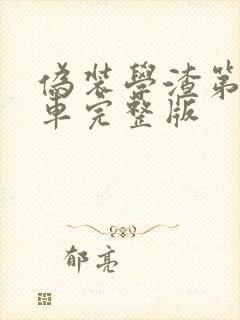 偽裝學渣第
車完整版
郁亮